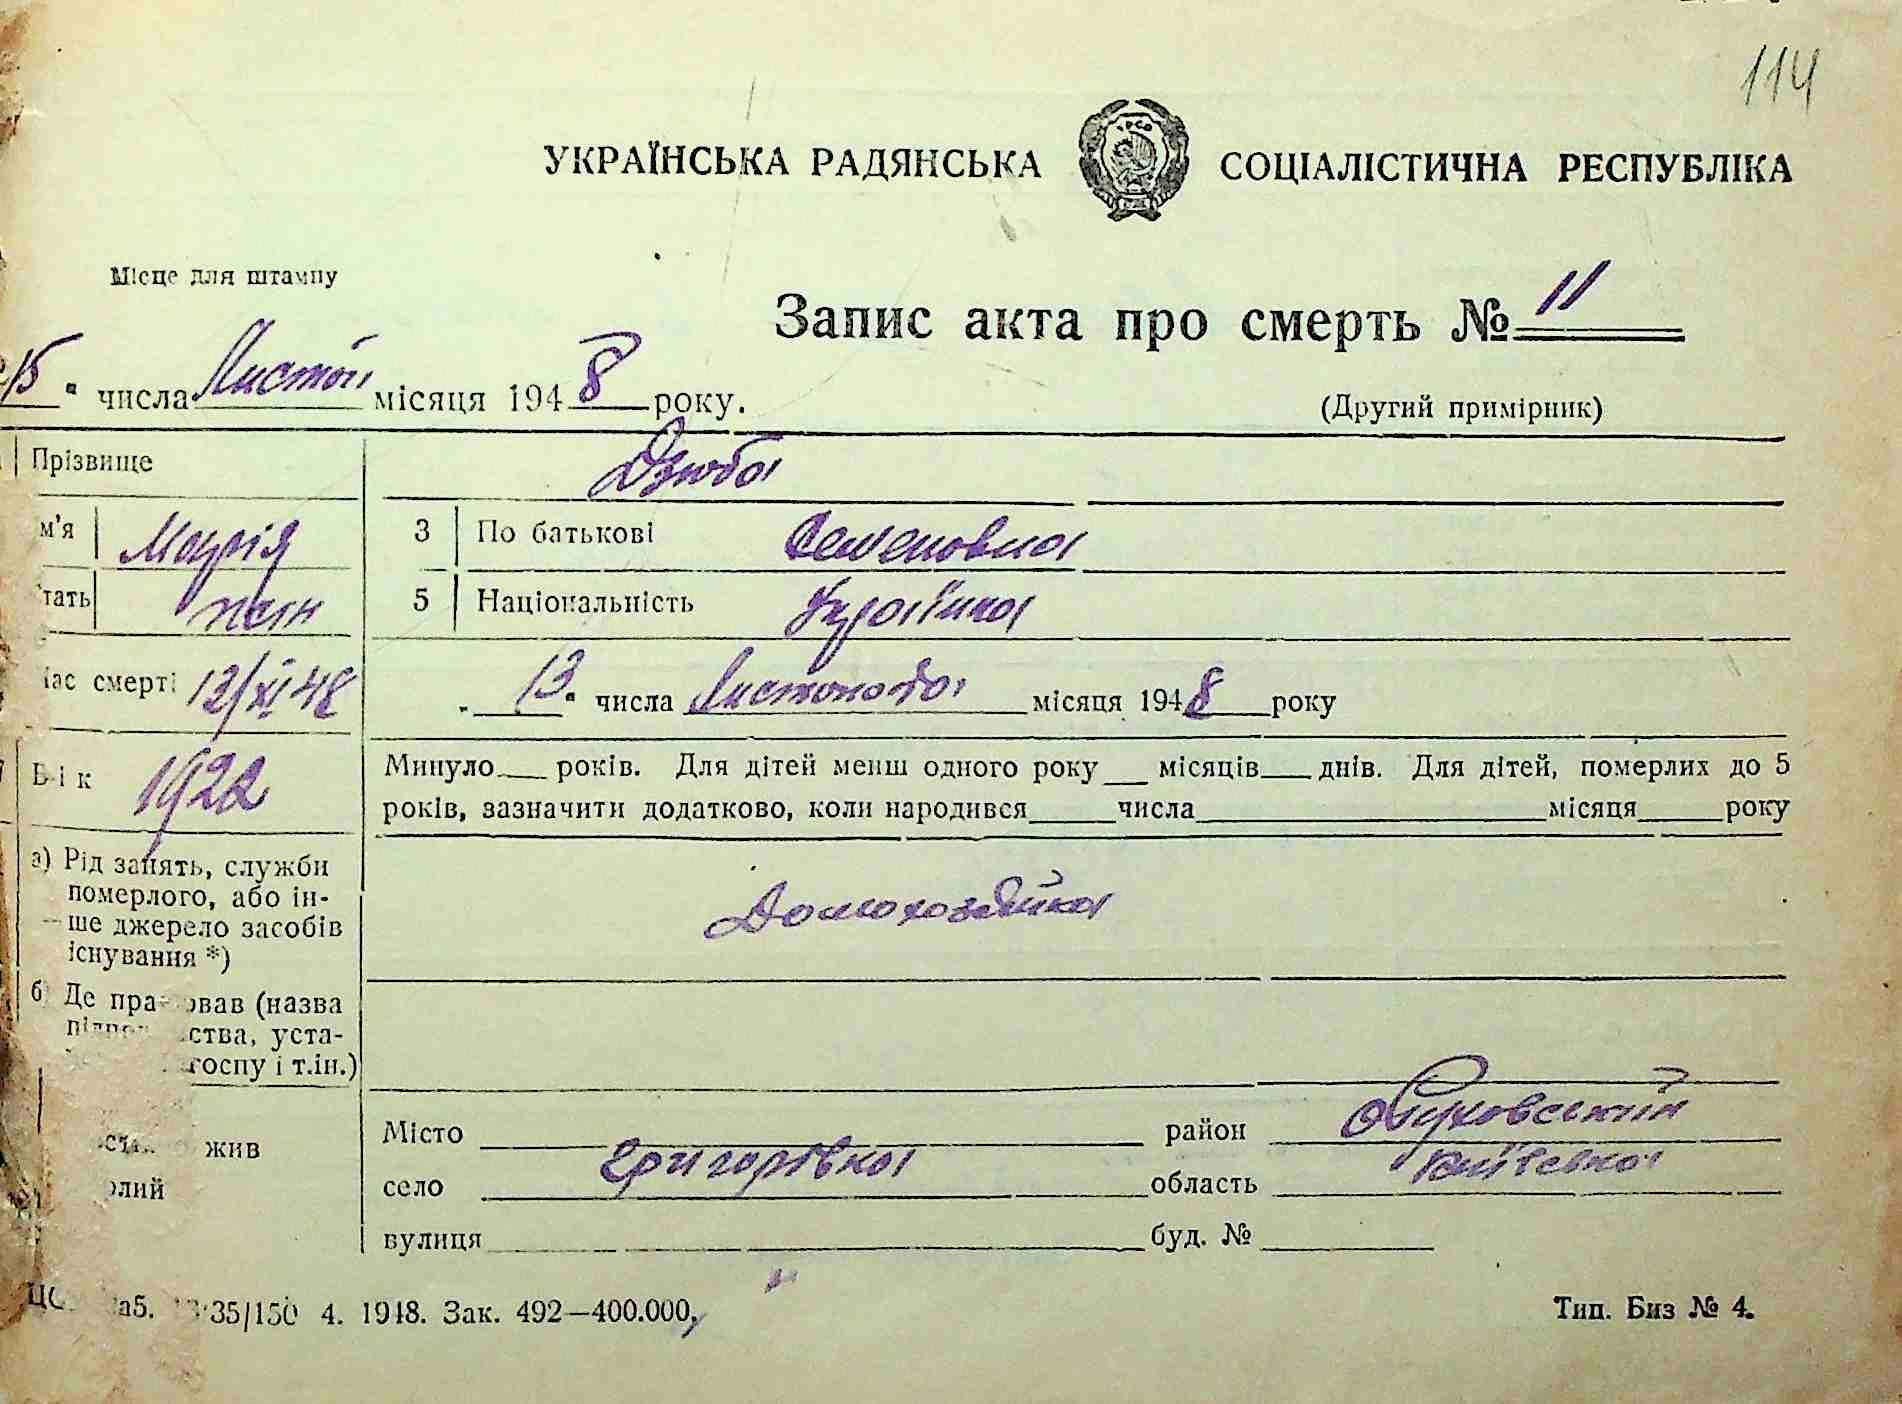 114
УКРАЇНСЬКА РАДЯНСЬКА СОЦІАЛІСТИЧНА РЕСПУБЛІКА
УРСР
Місце для штампу
Запис акта про смерть № 11
15 " числа Листоп місяця 1948 року.
(Другий примірник)
Прізвище Дзюба
м'я Марія 3 По батькові Семеновна
тать жін 5 Національність Українка
час смерті 13/XI 48 13 " числа Листопада місяця 1948 року
Вік 1922 Минуло року років. Для дітей менш одного року місяців днів. Для дітей, померлих до 5
років, зазначити додатково, коли народився числа місяця року
а) Рід занять, служби
померлого, або ін-
ше джерело засобів
існування *)
Домохозяйка
б) Де пра овав (назва
ства, уста-
госпу і т.ін.)
жив
олий
Місто район Обуховський
село Григорівка область Київська
вулиця буд. №
35/150 4. 1948. Зак. 492—400.000,
Тип. Биз № 4.